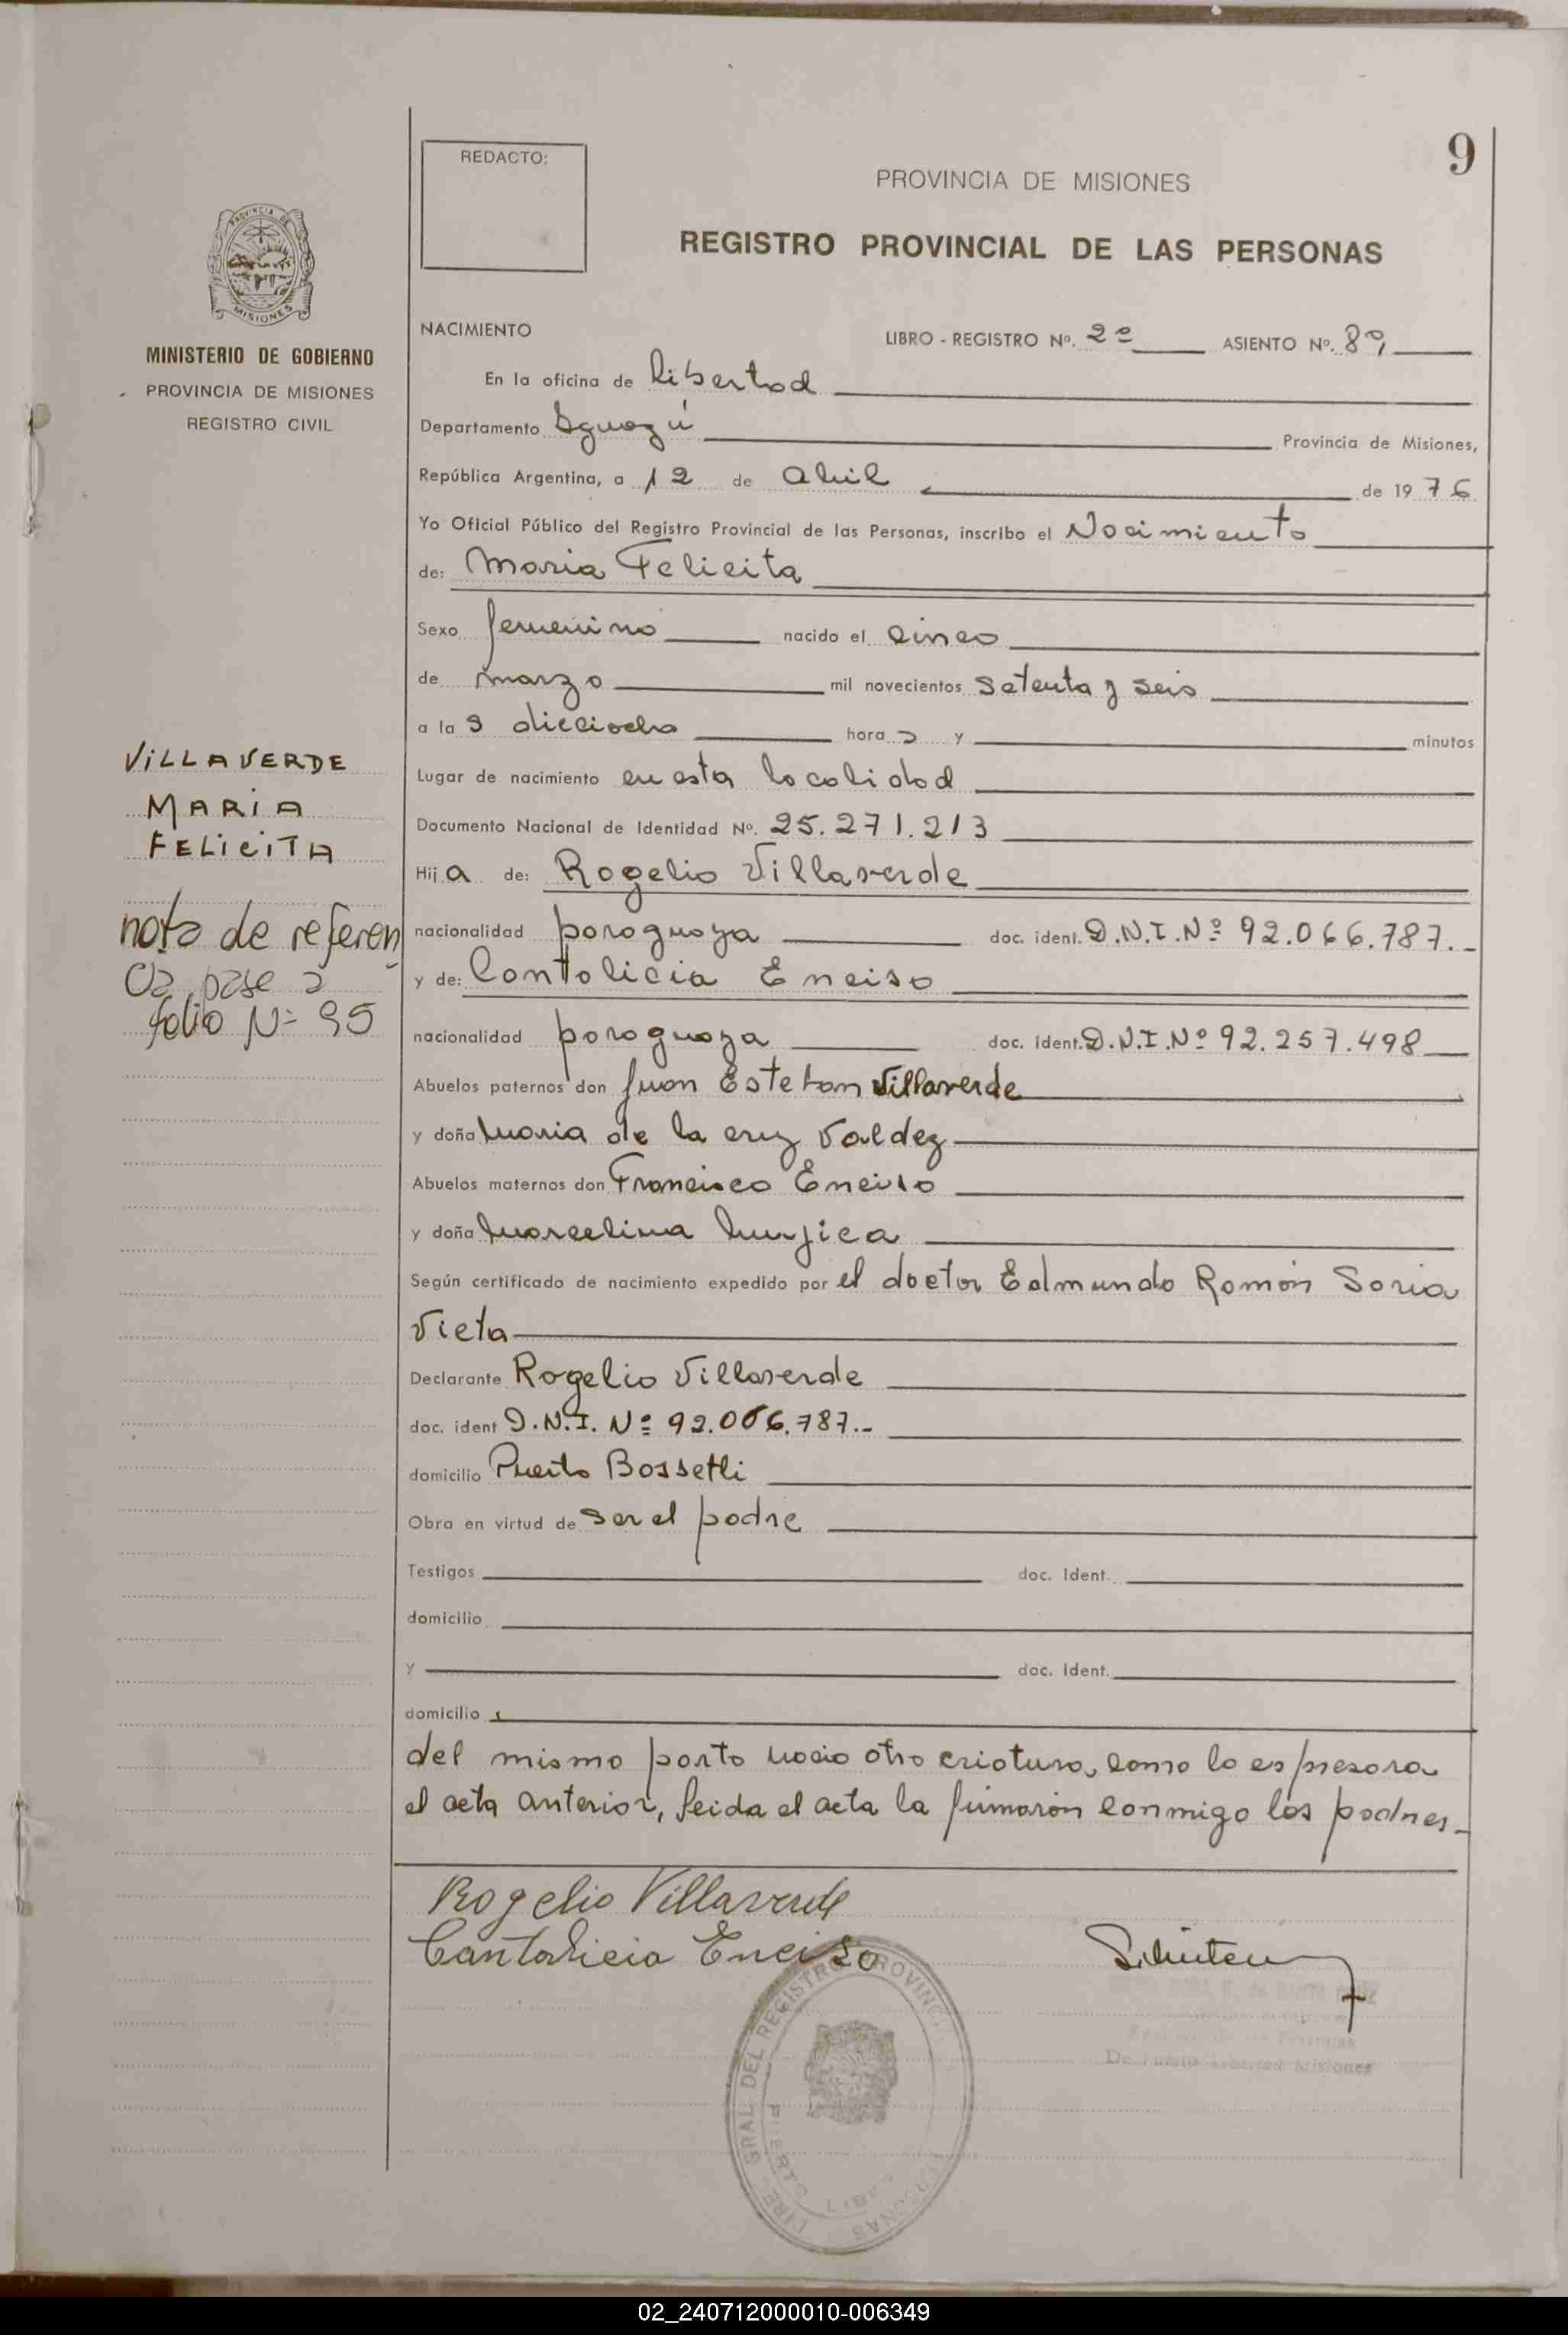 9
REDACTO:
PROVINCIA DE MISIONES
REGISTRO PROVINCIAL DE LAS PERSONAS
PROVINCIA DE
MISIONES
MINISTERIO DE GOBIERNO
PROVINCIA DE MISIONES
REGISTRO CIVIL
VILLAVERDE
MARIA
FELICITA
nota de referen
cia pase a
folio Nº 95
NACIMIENTO LIBRO - REGISTRO Nº. 2º ASIENTO Nº. 8º,
En la oficina de Libertad
Departamento Iguazú Provincia de Misiones,
República Argentina, a 12 de Abril de 19 76
Yo Oficial Público del Registro Provincial de las Personas, inscribo el Nacimiento
de: Maria Felicita
Sexo femenino nacido el cinco
de marzo mil novecientos setenta y seis
a la s dieciocho hora s y minutos
Lugar de nacimiento en esta localidad
Documento Nacional de Identidad Nº. 25.271.213
Hij a de: Rogelio Villaverde
nacionalidad paraguaya doc. ident. D.N.I.Nº 92.066.787.-
y de: Cantalicia Enciso
nacionalidad paraguaya doc. ident. D.N.I.Nº 92.257.498
Abuelos paternos don Juan Esteban Villaverde
y doña Maria de la cruz Valdez
Abuelos maternos don Francisco Enciso
y doña Marcelina Mujica
Según certificado de nacimiento expedido por el doctor Edmundo Ramón Soria
Vieta
Declarante Rogelio Villaverde
doc. ident D.N.I. Nº 92.066.787.-
domicilio Puerto Bossetti
Obra en virtud de ser el padre
Testigos doc. Ident.
domicilio
y doc. Ident.
domicilio
del mismo parto nacio otra criatura, como lo espresara
el acta anterior, leida el acta la firmarón conmigo los padres.-
Rogelio Villaverde
Cantalicia Enciso
DIRE GRAL DEL REGISTRO PROVINC
PERSONAS
Misiones
02_240712000010-006349